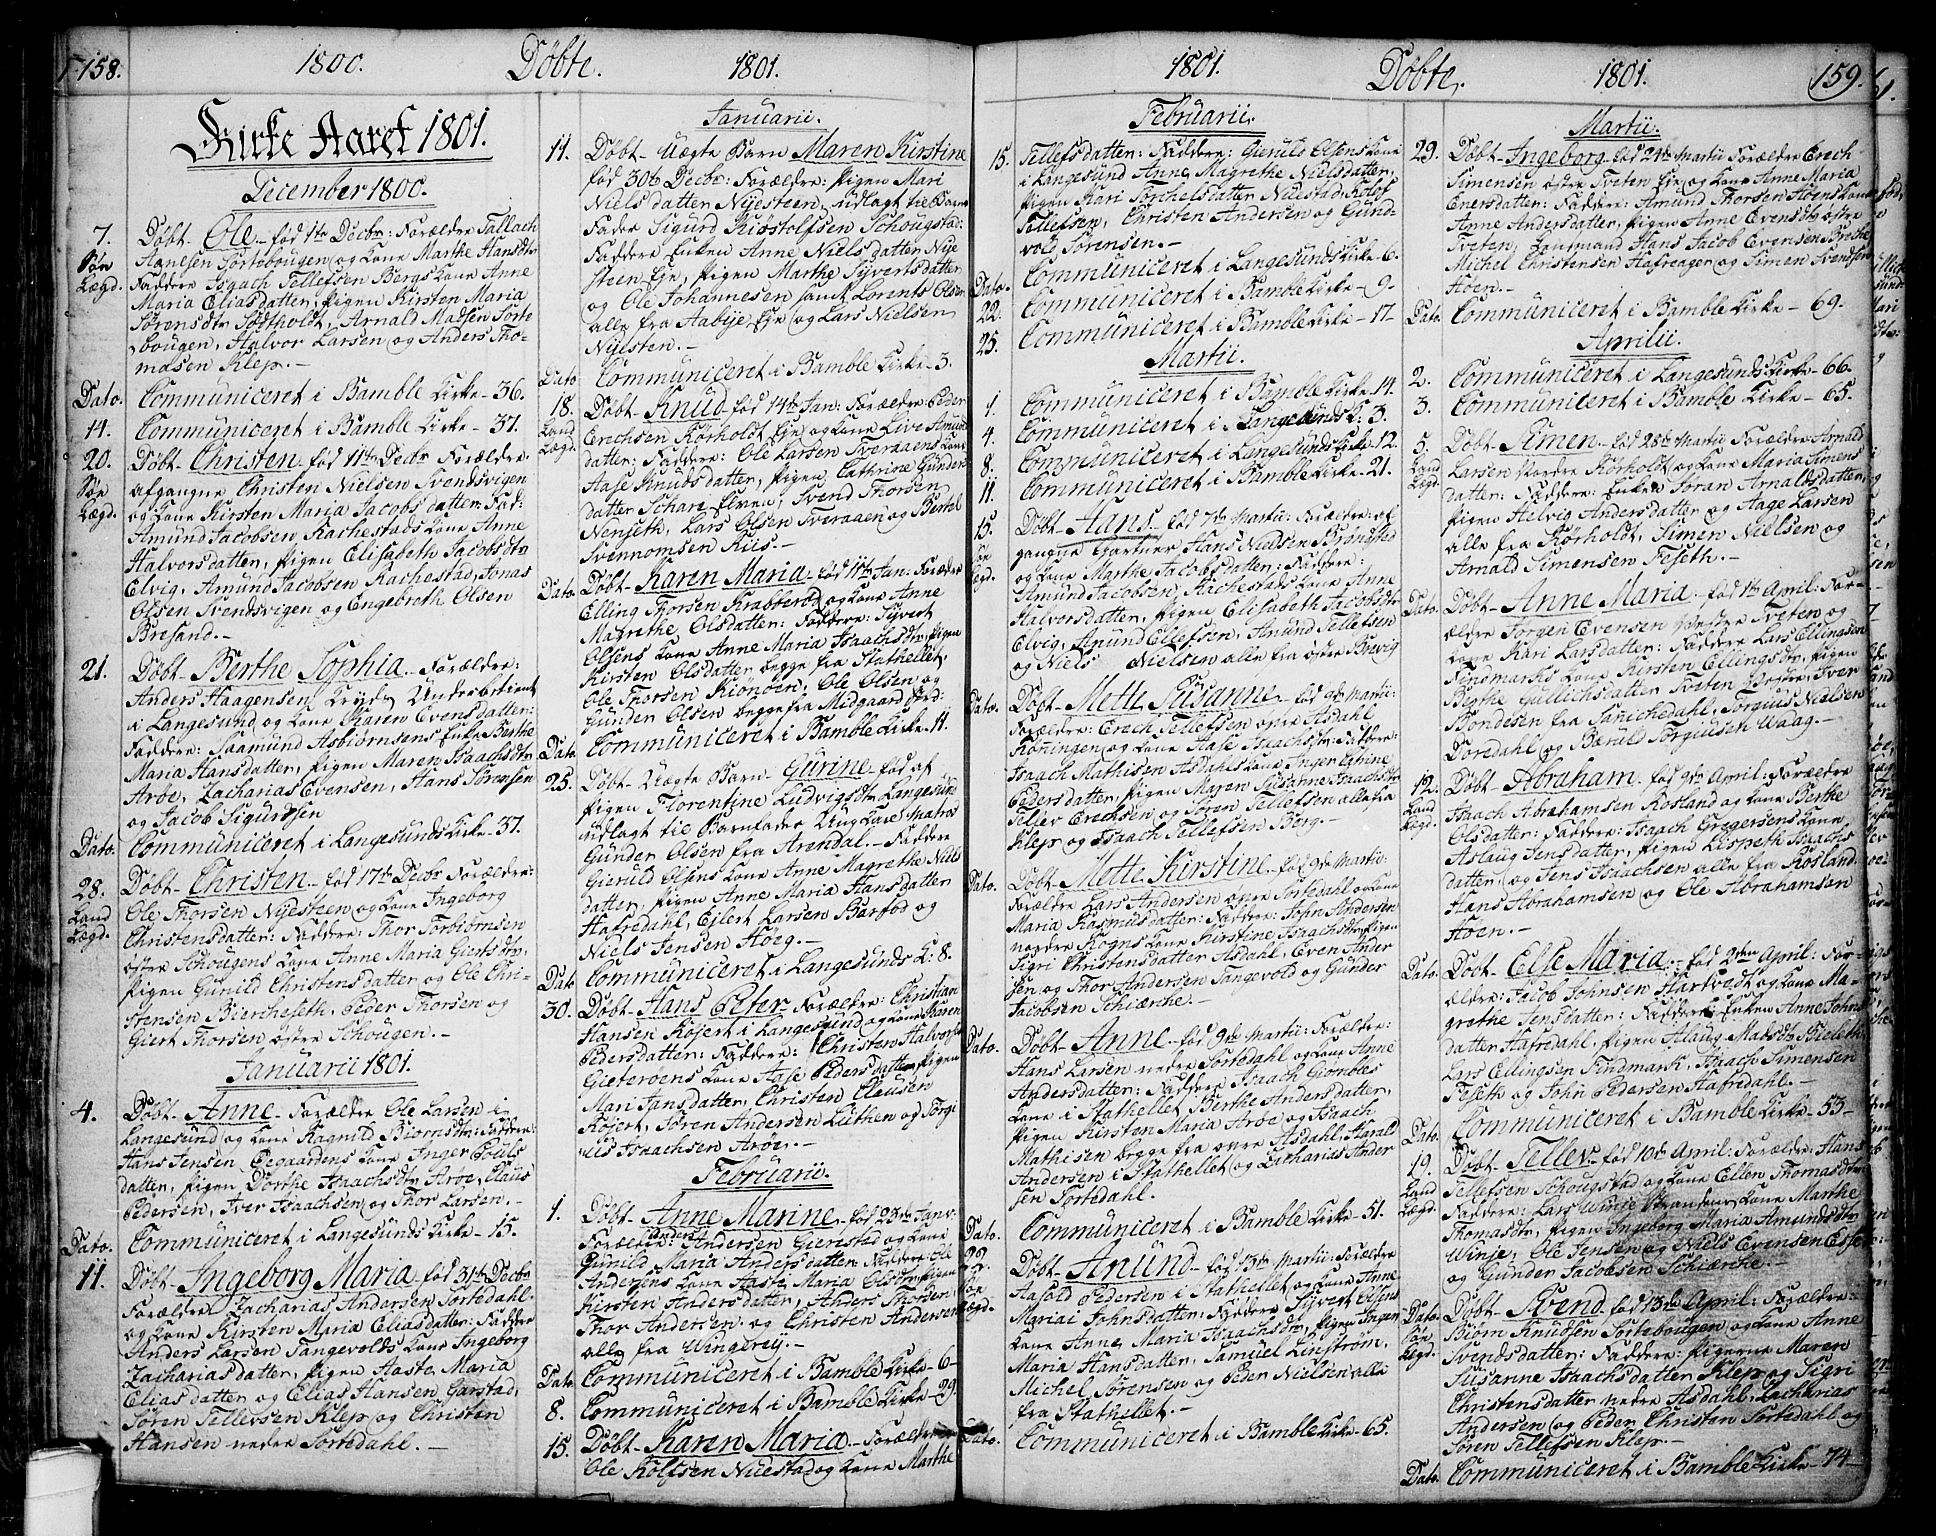 158. 1800. Døbte. 1801.
Kirke Aaret 1801.
December 1800.
7. Døbt Ole født 1te Decbr: Forældre Tallach
Søe Hansen Sortebougen og kone Marthe Hansdtr
Lægd. Faddere Isaach Tellefsen Bergs kone Anne
Maria Eliasdatter, pigen Kirsten Maria
Sørensdtr Sødtholdt, Arnold Madsen Sorte
bougen, Halvor Larsen og Anders Tho-
masen Klep.
Dato. Communiceret i Bamble Kirke 36.
14. Communiceret i Bamble Kirke 37.
20. Døbt Christen født 11te Decbr Forældre:
Søe afgangne Christen Nielsen Svendsvigen
Lægd. og kone Kirsten Maria Jacobsdatter: Fad:
Amund Jacobsen Rachestads kone Anne
Halvorsdatter, pigen Elisabeth Jacobsdtr
Elvig, Amund Jacobsen Rachestad, Jonas
Olsen Svendsvigen og Engebreth Olsen
Bresand.
21. Døbt Berthe Sophia Forældre:
Anders Haagensen Kryds Underbetient
i Langesund og kone Karen Evensdatter:
Faddere: Saamund Asbiørnsens Enke Berthe
Maria Hansdatter, pigen Maren Isaachsdtr
Arøe, Zacharias Evensen, Hans Sørensen
og Jacob Sigurdsen
Dato. Communiceret i Langesunds Kirke 37.
28. Døbt Christen født 17de Decbr Forældre:
Land Ole Thorsen Nyesteen og kone Ingeborg
Lægd. Christensdatter: Faddere: Thor Torbiørnsen
østre Schougens kone Anne Maria Giertsdtr,
pigen Gunild Christensdatter og Ole Chri-
stensen Bierchesæth, Peder Thorsen og
Giert Thorsen østre Schougen.
Januarii 1801.
4. Døbt Anne Forældre Ole Larsen i
Langesund og kone Ragnild Biørnsdtr: Faddere:
Hans Jensen Øegaardens kone Inger Pouls
datter, pigen Dorthe Isaachsdtr Arøe, Claus
Pedersen, Iver Isaachsen og Thor Larsen.
Dato. Communiceret i Langesunds Kirke 15.
11. Døbt Ingeborg Maria født 31te Decbr
Forældre Zacharias Andersen Sortedahl
og kone Kirsten Maria Eliasdatter: Faddere
Anders Larsen Tangevolds kone Ingeborg
Zachariasdatter, pigen Aaste Maria
Eliasdatter og Elias Hansen Garstad,
Søren Tellevsen Klep og Christen
Hansen nedre Sortedahl.
Januarii.
11. Døbt Uægte Barn Maren Kirstine
født 30te Decbr: Forældre: pigen Mari
Nielsdatter Nyesteen, udlagt til Barne
Fader Sigurd Kistolfsen Schougstad:
Faddere Enken Anne Nielsdatter Nye
steen Eje, pigen Marthe Syvertsdatter
og Ole Johannesen samt Lorents Olsen
alle fra Aabye Eje og Lars Nielsen
Nyesten.
Dato Communiceret i Bamble Kirke 3.
18. Døbt Knud født 14de Jan: Forældre: Peder
Land Erichsen Kørholdt Eje og kone Live Amund
Lægd. datter: Faddere: Ole Larsen Tveraaens kone
Aase Knudsdatter, pigen Cathrine Gunders
datter Schare Elven, Svend Thorsen
Nenseth, Lars Olsen Tveraaen og Bertel
Svennomsen Riis.
Dato. Døbt Karen Maria født 11te Jan: Forældre
Elling Thorsen Krabberød og kone Anne
Magrethe Olsdatter: Faddere: Syvert
Olsens kone Anne Maria Isaachsdtr, pigen
Kirsten Olsdatter begge fra Stathellet,
Ole Thorsen Kiønøen, Ole Olsen og
Gunder Olsen begge fra Midgaard Strd.
Dato. Communiceret i Bamble Kirke 11.
25. Døbt Uægte Barn Gurine født af
pigen Florentine Ludvigsdtr Langesund
udlagt til Barnfader Ung Karl Matros
Gunder Olsen fra Arendal. Faddere
Gieruld Olsens kone Anne Magrethe Niels
datter, pigen Anne Maria Hansdatter
Hafredahl, Ejlert Larsen Barfod og
Niels Jensen Høeg.
Dato Communiceret i Langesunds K: 8.
30. Døbt Hans Peter Forældre: Christian
Hansen Røjert i Langesund og kone Karen
Pedersdatter: Faddere: Christen Halvorsen
Gieterøens kone Aase Pedersdatter, pigen
Mari Jansdatter, Christen Clausen
Røjert, Søren Andersen Luthen og Jørgi
us Isaachsen Arøe.
Februarii.
1. Døbt Anne Marine født 23de Janv:
Forældre: Anders Andersen Gierestad og kone
Gunild Maria Andersdatter Faddere Ole
Andersens kone Aaste Maria Olsdtr, pigen
Kirsten Andersdatter, Anders Thorsen
Thor Andersen og Christen Andersen
alle fra Wingerey.
Dato. Communiceret i Bamble Kirke 6
8. Communiceret i Bamble Kirke 29.
15. Døbt Karen Maria Forældre
Ole Rolfsen Nuestad og kone Marthe
1801. Døbte. 1801. 159.
Februarii.
15. Tellefsdatter: Faddere: Gieruld Olsens kone
i Langesund Anne Magrethe Nielsdatter,
pigen Kari Torchelsdatter Nuestad, Rolef
Tellefsen, Christen Andersen og Gund-
vold Sørensen.
Dato. Communiceret i Langesunds Kirke 6.
22. Communiceret i Bamble Kirke 9.
25. Communiceret i Bamble Kirke 17
Martii.
1. Communiceret i Bamble Kirke 14
4. Communiceret i Langesunds K: 3.
8. Communiceret i Langesunds Kirke 12.
11. Communiceret i Bamble Kirke 21.
15. Døbt Hans født 7de Martii: Forældre: af
Søe gangne Gartner Hans Nielsen Brønstad
Lægd. og kone Marthe Jacobsdatter: Faddere:
Amund Jacobsen, Rachestads kone Anne
Halvorsdatter, pigen Elisabeth Jacobsdtr
Elvig, Anund Ellefsen, Anund Tellefsen
og Niels Nielsen alle fra østre Brevig
Dato. Døbt Mette Susanne født 9de Martii:
Forældre: Erech Tellefsen øvre Asdahl
Køningen og kone Aase Isaachsdtr: Faddere:
Isaach Mathisen Asdahls kone Inger Catrine
Pedersdatter, pigen Maren Susanne Isaachsdtr
Tellev Erechsen og Søren Tellefsen alle fra
Klep og Isaach Tellefsen Berg.
Dato. Døbt Mette Kirstine født 9de Martii:
Forældre Lars Andersen øvre Sortedahl og kone
Maria Rasmusdatter: Faddere: John Andersen
nordre Rogns kone Kirstine Isaachsdtr, pigen
Sigri Christensdatter Asdahl, Even Ander
sen og Thor Andersen Tangevold og Gunder
Jacobsen Schierche.
Dato. Døbt Anne født 9de Martii: Forældre:
Hans Larsen nedre Sortedahl og kone Anne
Andersdatter: Faddere Isaach Grombles
kone i Stathellet Berthe Andersdatter,
pigen Kirsten Maria Arøe og Isaach
Mathisen begge fra øvre Asdahl, Harald
Andersen i Stathellet og Zacharias Ander
sen Sortedahl.
Dato. Communiceret i Bamble Kirke 51.
22. Døbt Anund født 13de Martii: Forældre
Søe Hasold Pedersen i Stathellet og kone Anne
Lægd. Mariai Johnsdatter: Faddere Syvert Olsens
kone Anne Maria Isaachsdtr, pigen Inger
Maria Hansdatter, Samuel Linstrøm,
Michel Sørensen og Peder Nielsen alle
fra Stathellet.
Dato. Communiceret i Bamble Kirke 65.
Martii.
29. Døbt Ingeborg født 21de Martii Forældre Erech
Simensen østre Tveten Eje og kone Anne Maria
Enersdatter: Faddere: Amund Thorsen Høens kone
Anne Andersdatter, pigen Anne Evensdtr østre
Tveten, Landmand Hans Jacob Evensen Brethe
Michel Christensen Hafreager og Simen Svendsen
Høen.
Dato. Communiceret i Bamble Kirke 69.
Aprilii
2. Communiceret i Langesunds Kirke 66.
3. Communiceret i Bamble Kirke 65.
5. Døbt Simen født 28de Martii Forældre Arnold
Land Larsen nordre Kørholdt og kone Maria Simens
Lægd. datter: Faddere: Enken Søran Arnoldsdatter,
pigen Helvig Andersdatter og Aage Larsen
alle fra Kørholdt, Simen Nielsen og
Arnold Simensen Feseth.
Dato. Døbt Anne Maria født 1te April: For-
ældre Jørgen Evensen Westre Tveten og
kone Kari Larsdatter: Faddere Lars Ellingsen
Findmarks kone Kirsten Ellingsdtr, pigen
Berthe Gullichsdatter Tveten Westre, Iver
Bondesen fra Sanichedahl, Torguus Nielsen
Dordahl og Bæruld Torguusen Waag.
12. Døbt Abraham født 9de April: Forældre
Land Isaach Abrahamsen Rosland og kone Berthe
Lægd. Olsdatter: Faddere: Isaach Gregersens kone
Aslaug Jensdatter, pigen Lispeth Isaachs
datter, og Jens Isaachsen alle fra Rosland
Hans Abrahamsen og Ole Abrahamsen
Høen.
Dato. Døbt Else Maria født 2den April: For-
ældre: Jacob Johnsen Hartvedt og kone Ma-
grethe Jensdatter: Faddere: Enken Anne Johns
datter Hafredahl, pigen Alaug Matsdtr Fieleth,
Lars Ellingsen Findmark, Isaach Simensen
Feseth og John Pedersen Hafredahl.
Dato. Communiceret i Bamble Kirke 53
19. Døbt Tellev født 10de April: Forældre: Hans
Land Tellefsen Schougstad og kone Ellen Thomasdtr
Lægd. Faddere: Lars Winje Strandens kone Marthe
Thomasdtr, pigen Ingeborg Maria Amundsdtr
Winje, Ole Jensen og Niels Evensen
og Gunder Jacobsen Schierche.
Dato. Døbt Svend født 13de April: Forældre:
Søe Biørn Knudsen Sortebougen og kone Anne
Lægd. Svendsdatter: Faddere: pigerne Maren
Susanne Isaachsdatter Klep og Sigri
Christensdatter nedre Asdahl, Zacharias
Andersen og Peder Christen Sortedahl og
Søren Tellefsen Klep.
Dato Communiceret i Bamble Kirke 74